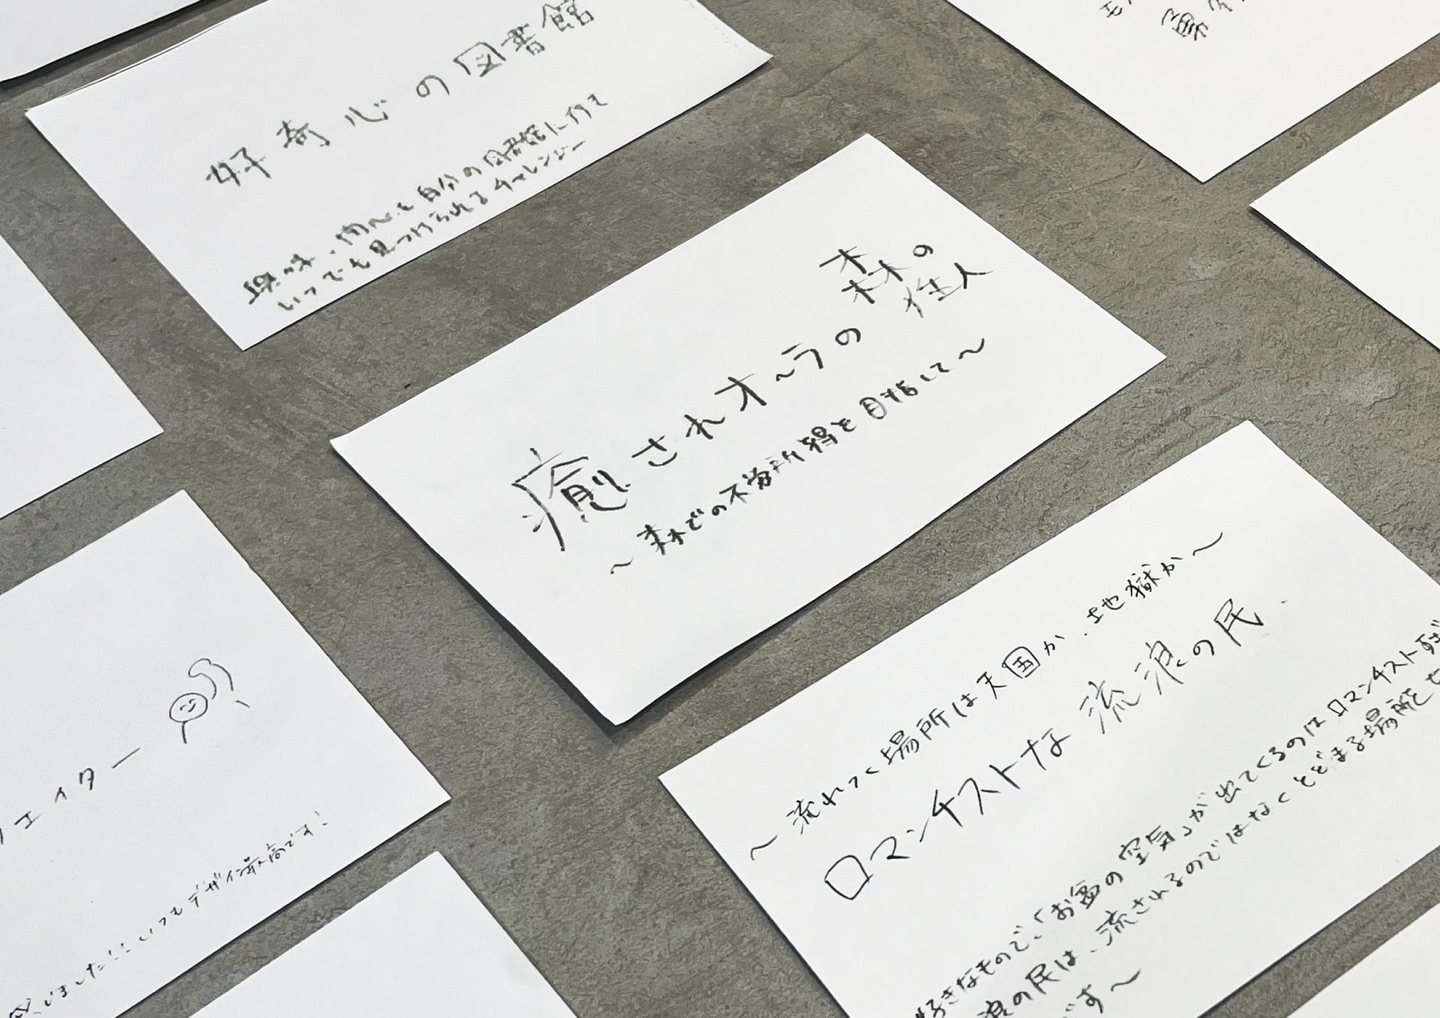 好奇心の図書館
興味・関心を自分の図書館に行き
いつでも見つけられるチャレンジー
癒されオーラの森の住人
〜森での不労所得を目指して〜
〜流れつく場所は天国か、地獄か〜
ロマンチストな流浪の民、
好きなもので、「お盆の空気」が出てくるのはロマンチスト
浪の民は、流されるのではなくとどまる場所を
です〜
エイター
じました!!いつもデザイン最高です!